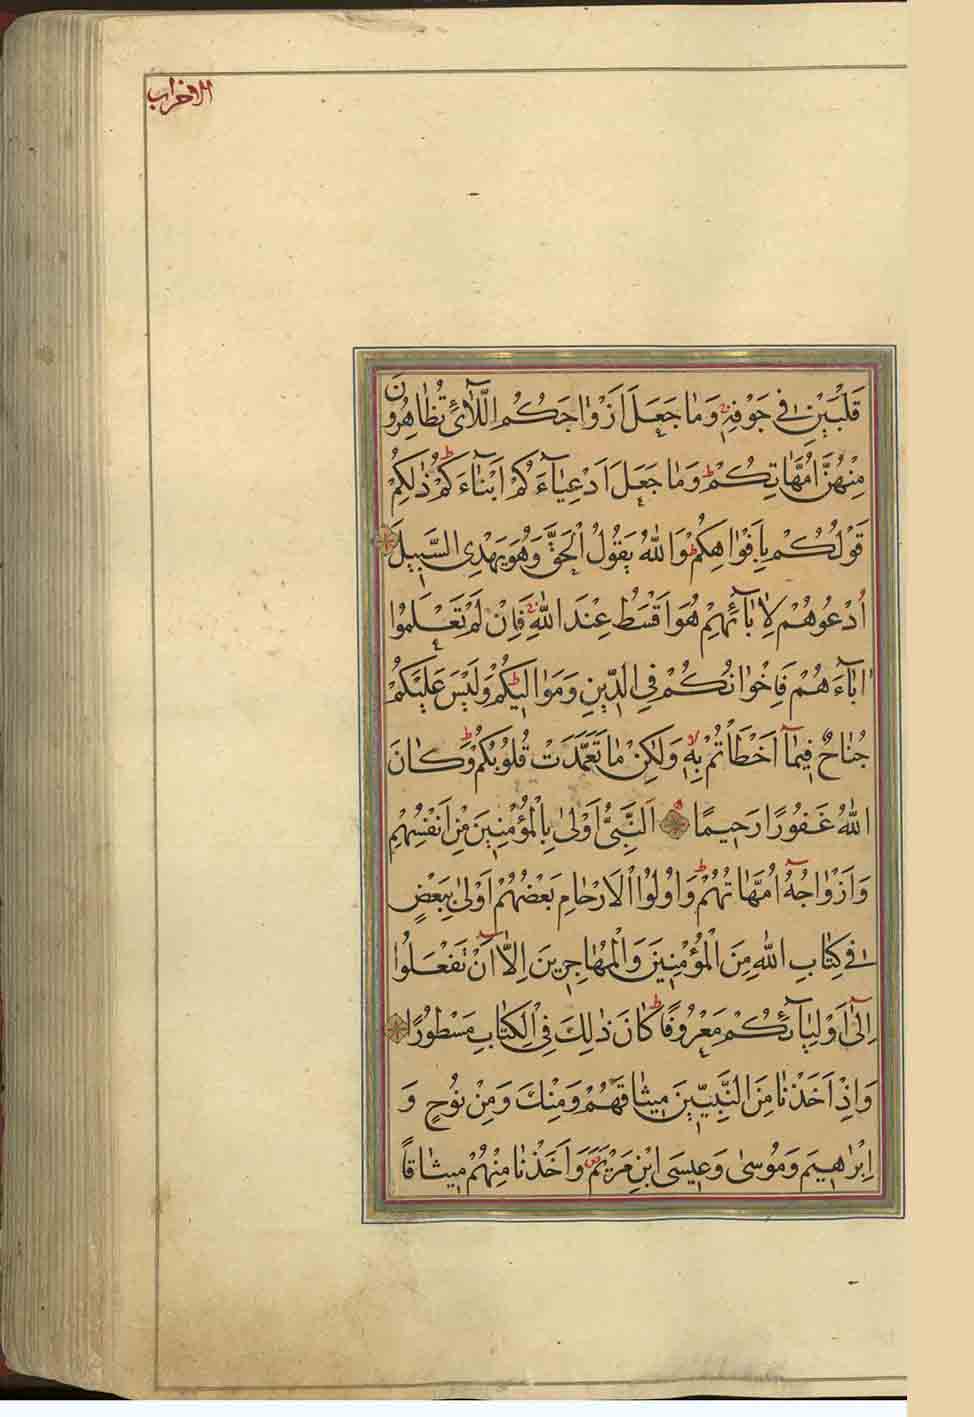 الاحزاب
قَلْبَيْنِ فِي جَوْفِهِ وَمَا جَعَلَ اَزْوَاجَكُمُ اللَّائِي تُظَاهِرُونَ
مِنْهُنَّ اُمَّهَاتِكُمْ وَمَا جَعَلَ اَدْعِيَاءَكُمْ اَبْنَاءَكُمْ ذٰلِكُمْ
قَوْلُكُمْ بِاَفْوَاهِكُمْ وَاللهُ يَقُولُ الْحَقَّ وَهُوَ يَهْدِي السَّبِيلَ
اُدْعُوهُمْ لِاٰبَائِهِمْ هُوَ اَقْسَطُ عِنْدَ اللهِ فَاِنْ لَمْ تَعْلَمُوا
اٰبَاءَهُمْ فَاِخْوَانُكُمْ فِي الدِّينِ وَمَوَالِيكُمْ وَلَيْسَ عَلَيْكُمْ
جُنَاحٌ فِيمَا اَخْطَأْتُمْ بِهِ وَلٰكِنْ مَا تَعَمَّدَتْ قُلُوبُكُمْ وَكَانَ
اللهُ غَفُورًا رَحِيمًا اَلنَّبِيُّ اَوْلٰى بِالْمُؤْمِنِينَ مِنْ اَنْفُسِهِمْ
وَاَزْوَاجُهُ اُمَّهَاتُهُمْ وَاُولُوا الْاَرْحَامِ بَعْضُهُمْ اَوْلٰى بِبَعْضٍ
فِي كِتَابِ اللهِ مِنَ الْمُؤْمِنِينَ وَالْمُهَاجِرِينَ اِلَّا اَنْ تَفْعَلُوا
اِلٰى اَوْلِيَائِكُمْ مَعْرُوفًا كَانَ ذٰلِكَ فِي الْكِتَابِ مَسْطُورًا
وَاِذْ اَخَذْنَا مِنَ النَّبِيِّينَ مِيثَاقَهُمْ وَمِنْكَ وَمِنْ نُوحٍ وَ
اِبْرَاهِيمَ وَمُوسٰى وَعِيسَى ابْنِ مَرْيَمَ وَاَخَذْنَا مِنْهُمْ مِيثَاقًا